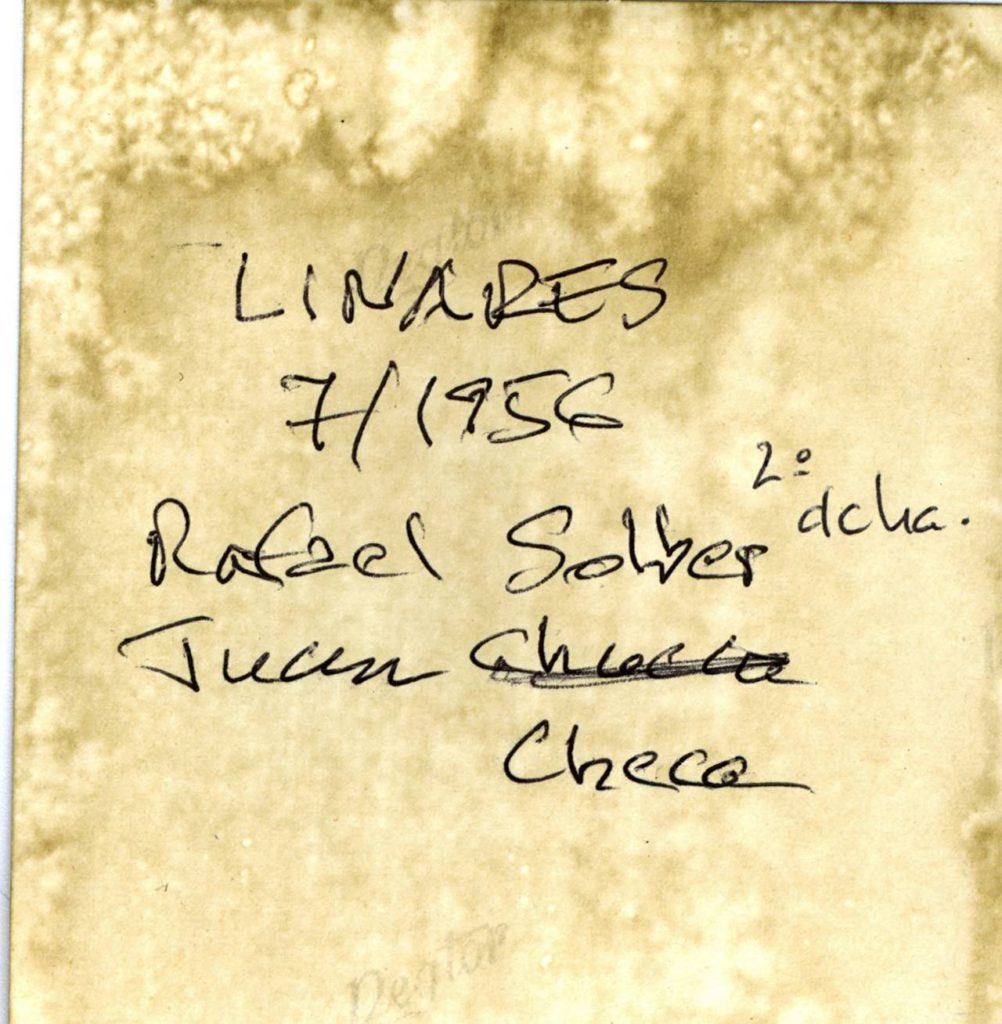 LINARES
7/1956
Rafael Solver 2º dcha.
Juan
Checa
Dentor